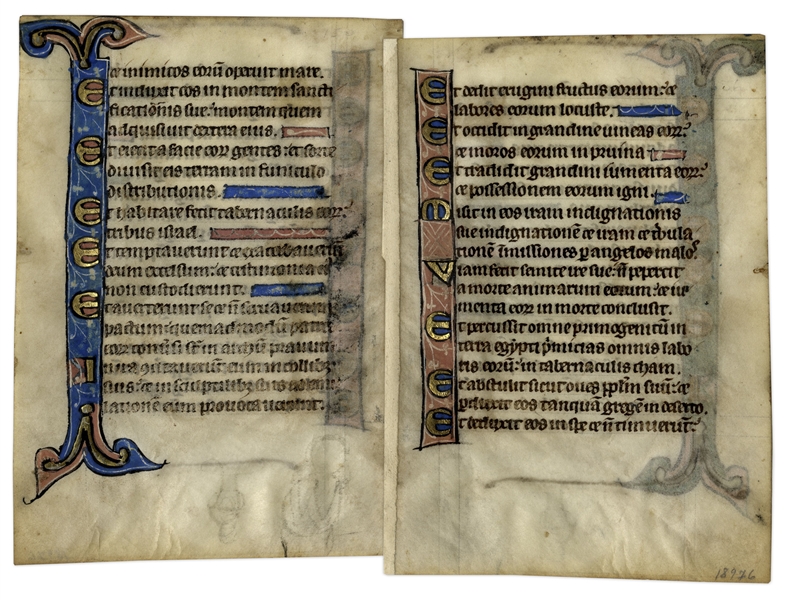 et inimicos eorū operuit mare.
Et induxit eos in montem sancti
ficatiōnis sue: montem quem
adquisiuit dextera eius.
Et eiecit a facie eorꝝ gentes: et sorte
diuisit eis terram in funiculo
distributionis.
Et habitare fecit tabernaculis eorꝝ:
tribus israel.
Et temptauerunt et exacerbauerūt
deum excelsum: et testimonia eius
non custodierunt.
Et auerterunt se et n̄ seruauerunt
pactum: quemadmodū patres
eorꝝ conuersi sūt in arcum prauum
In ira concitauerūt eum in collibꝫ
suis: et in sculptilibꝫ suis ad emu
lationē eum prouocauerunt.
Et dedit erugini fructus eorum: et
labores eorum locuste.
Et occidit in grandine uineas eorꝝ:
et moros eorum in pruina
Et tradidit grandini iumenta eorꝝ:
et possessionem eorum igni.
Misit in eos iram indignationis
sue indignationē et iram et tribula
tionē īmissiones ꝑ angelos malos
Viam fecit semite ire sue: n̄ pepercit
a morte animarum eorum: et iu
menta eorꝝ in morte conclusit.
Et percussit omne primogenitū in
terra egypti p̄micias omnis labo
ris eorū: in tabernaculis cham.
Et abstulit sicut oues pplm̄ suū: et
ꝑduxit eos tanquā gregē in deserto.
Et deduxit eos in spe et n̄ timuerūt:
18976